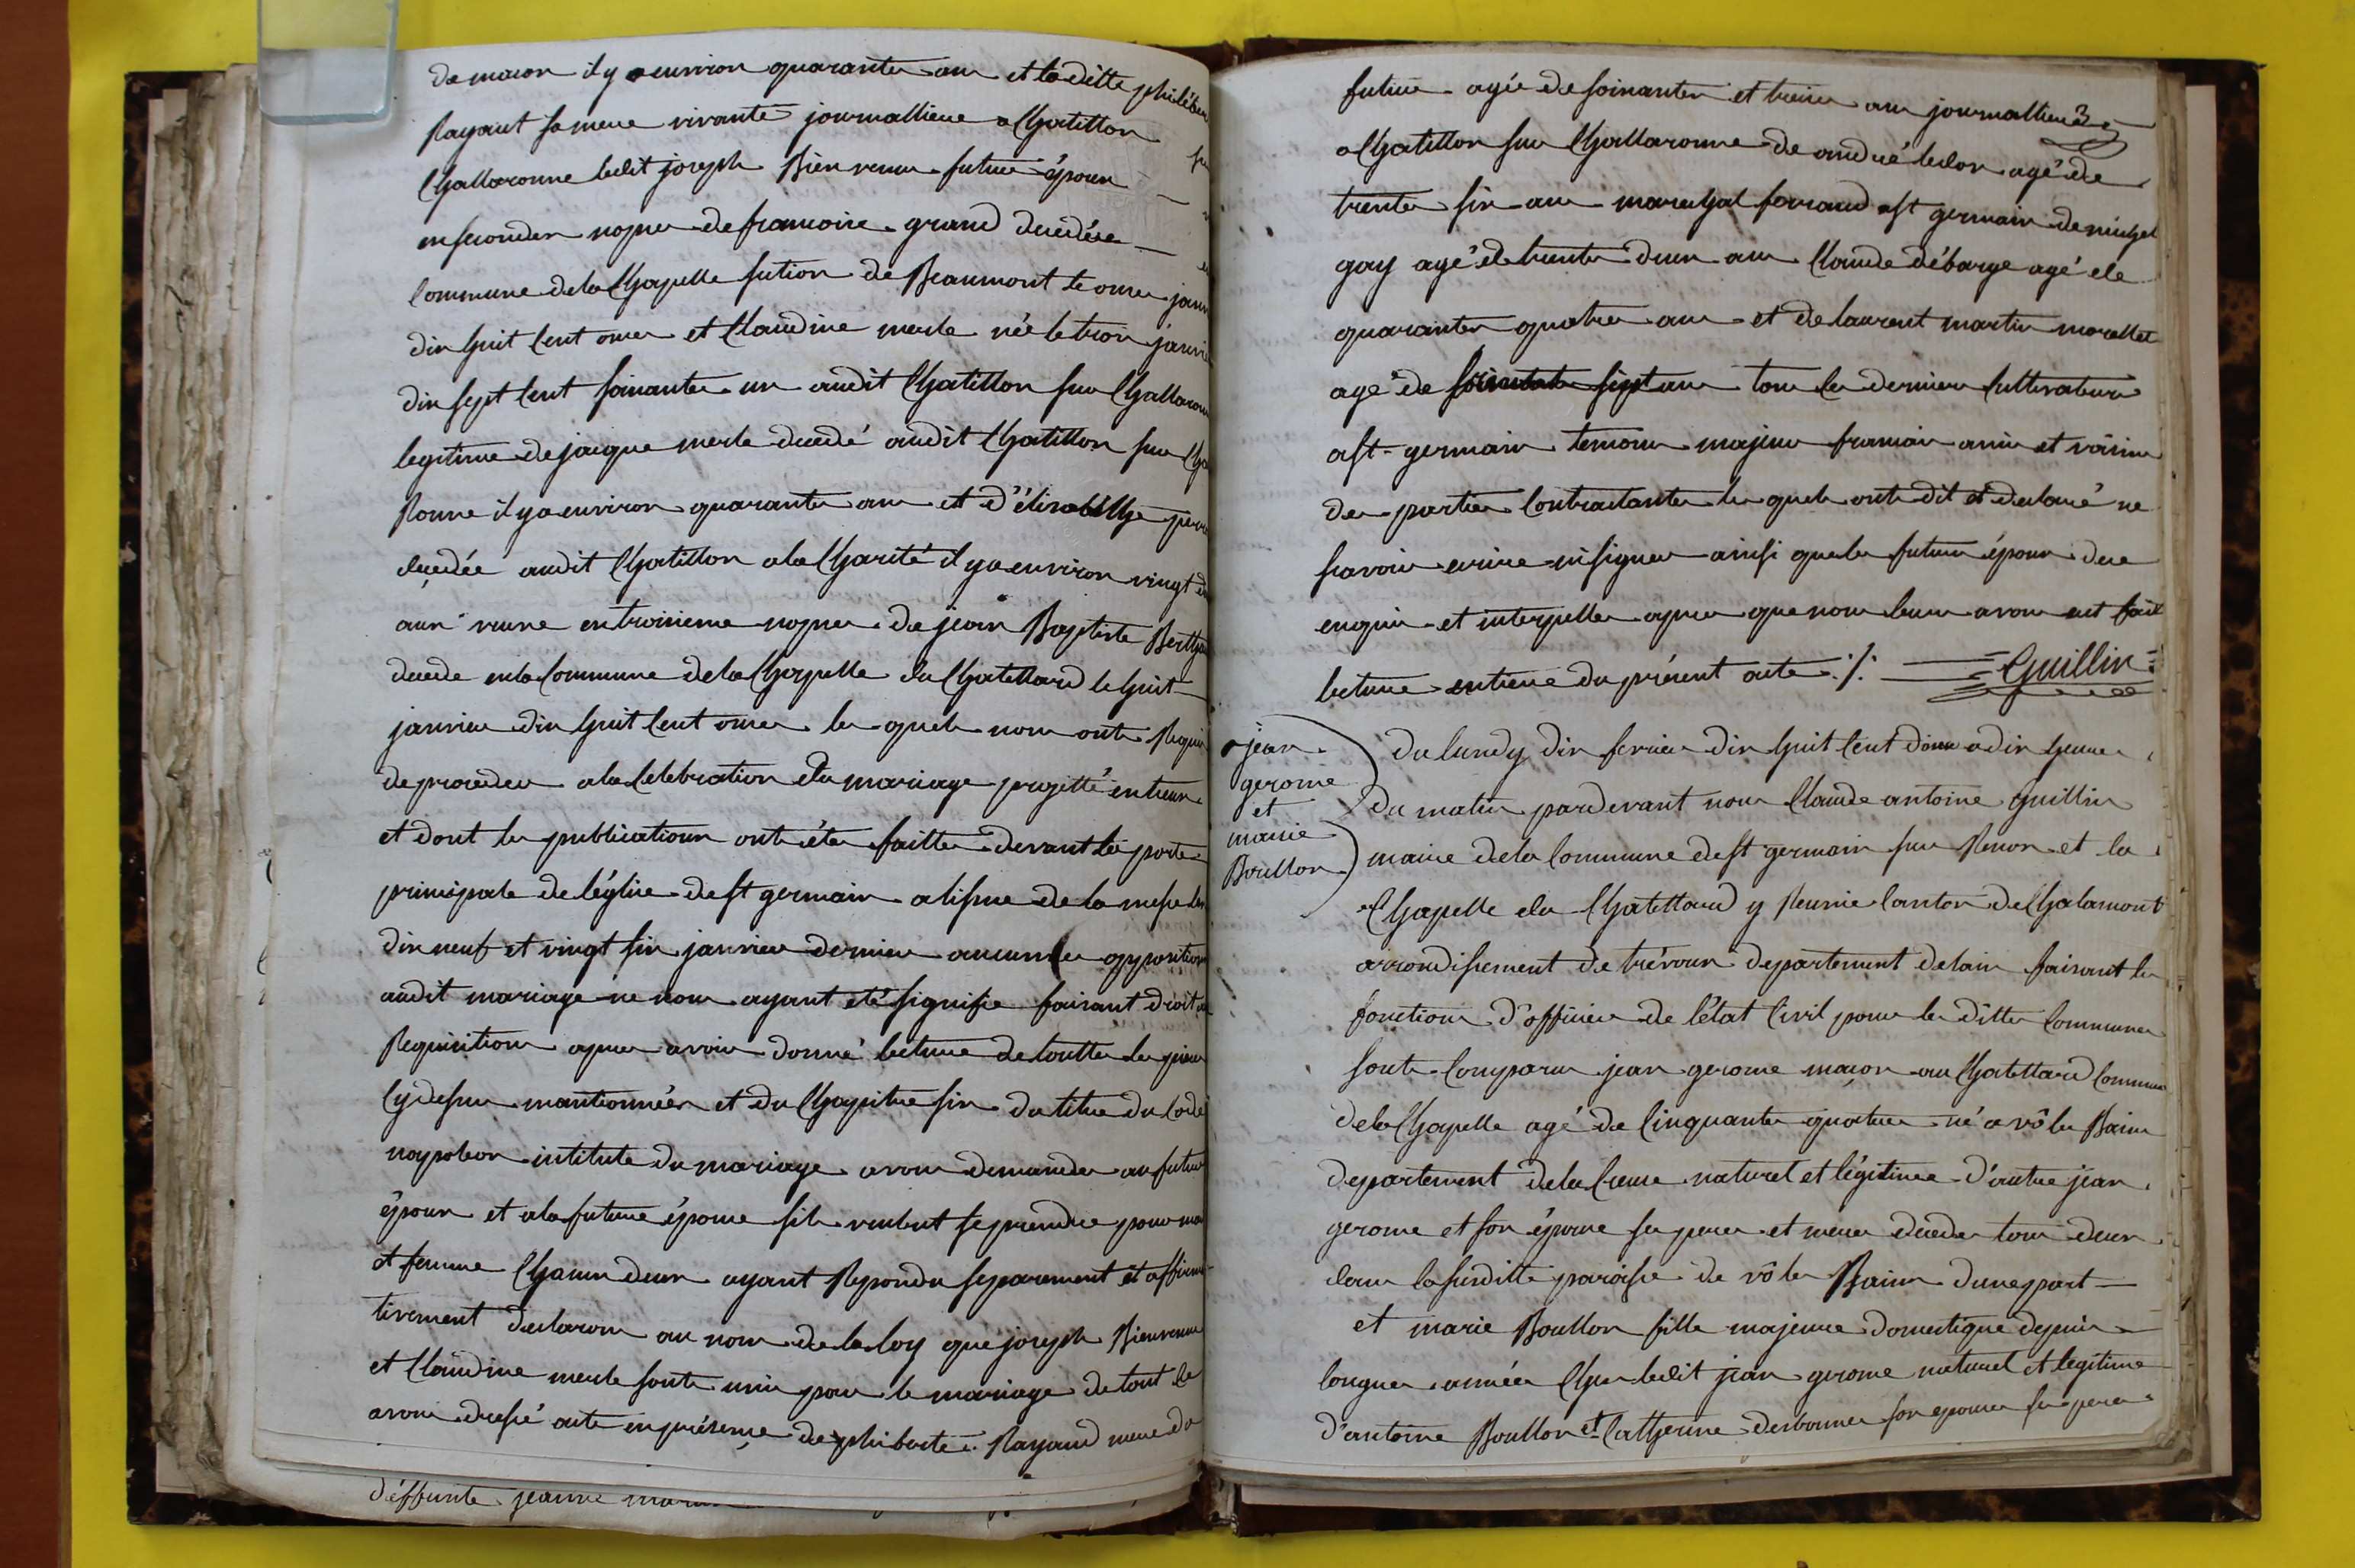 de macon il y a environ quarante ans et la ditte philiber
Rayaut sa mere vivante journalliere a Chatillon
Challaronne ledit joseph Bienvenu futur époux
en secondes nopces de francoise grand decedée
commune de la Chapelle section de Beaumont le onze janv
dix huit cent onze et Claudine merle née le trois janvi
dix sept cent soixante un audit Chatillon sur Challaron
legitime de jacque merle decedé audit Chatillon sur Cha
Ronne il y a environ quarante ans et d'élisabethe
decedée audit Chatillon a la Charité il y a environ vingt
ans veuve en troisieme nopces de jean Baptiste Berthe
decedé en la Commune de la Chappelle du Chatellard le huit
janvier dix huit cent onze les quels nous ont Requis
de proceder a la Celebration du mariage projetté entreux
et dont les publications ont étés faittes devant la porte
principale de léglise de st germain a lissue de la messe les
dix neuf et vingt six janvier dernier aucunes opposition
audit mariage ne nous ayant eté signifie faisant droit
Requisition apres avoir donné lecture de touttes les pieces
Cy dessus mantionnées et du Chapitre six du titre du Code
napoleon intitulé du mariage avons demandés au futur
époux et a la future épouse sils veulent se prendre pour mar
et femme Chacun deux ayant Repondu separement et affirma
tivement declarons au nom de la loy que joseph Bienvenu
et Claudine merle sont unis pour le mariage de tout ce
avons dressé acte en présence de philiberte Rayaud mere de
déffunte jeanne
future agée de soixantes et treize ans journalliere
a Chatillon sur Challaronne de andré ledon agé de
trente six ans marechal ferrand a st germain de michel
gay agé de trente deux ans Claude débarge agé de
quarante quatre ans et de laurent martin morellet
agé de soixante sept ans tous les derniers Cultivateurs
a st germain temoins majeurs francais amis et voisins
des parties Contractantes les quels ont dit et declaré ne
scavoir ecrire ni signer ainsi que les futurs époux de ce
enquis et interpellés apres que nous leurs avons eut fait
lecture entiere du présent acte ./. Guillin
jean
gerome
et
marie
Boullon
du lundy dix fevrier dix huit cent douze a dix heures
du matin pardevant nous Claude antoine guillin
maire de la Commune de st germain sur Renon et la
Chapelle du Chatellard y Reunie Canton de Chalamont
arrondissement de trévoux departement de lain faisant les
fonctions d'officier de l'état Civil pour les dittes Communes
sont Comparus jean gerome maçon au Chatellard Commune
de la Chapelle agé de Cinquante quatre né a vô les Bains
departement de la Creuse naturel et légitime d'autre jean
gerome et son épouse ses pere et mere decedes tous deux
dans la susditte paroisse de vô les Bains dune part
et marie Boullon fille majeure domestique depuis
longues années Chez ledit jean gerome naturel et legitime
d'antoine Boullon et Catherine desbonnes son epouse ses pere